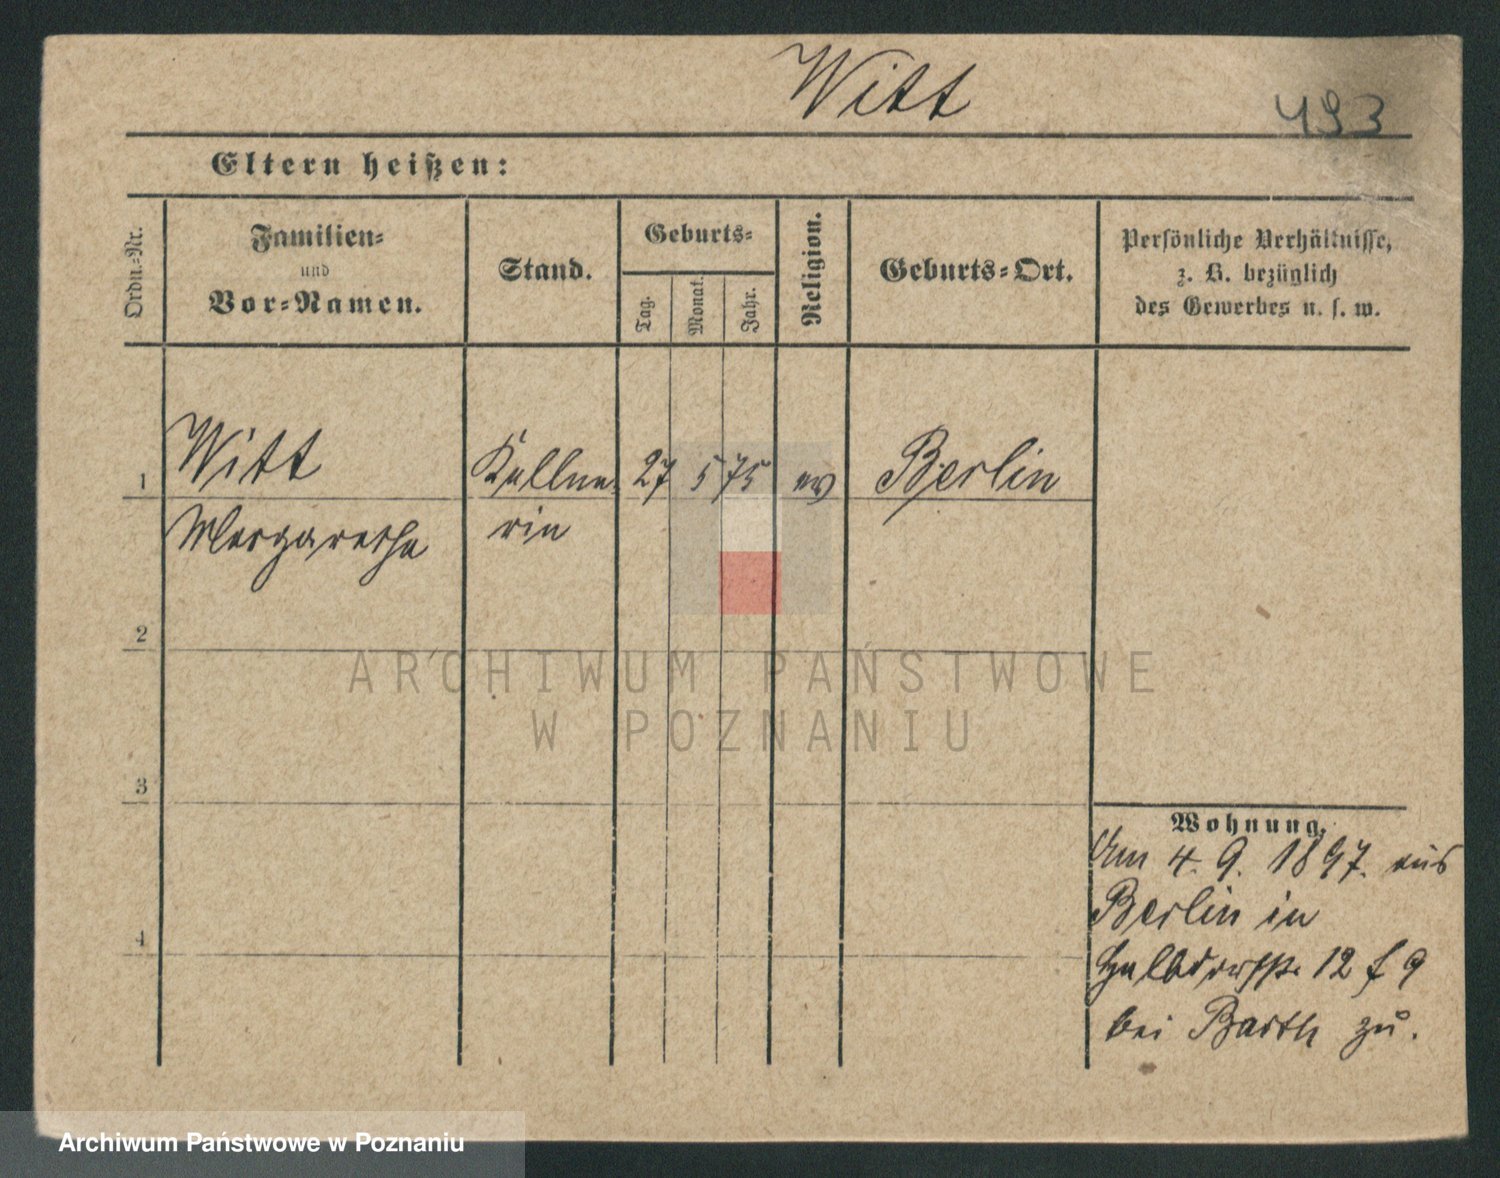 Witt
493
Eltern heißen:
Ordn.-Nr.
Familien-
und
Vor-Namen.
Stand.
Geburts-
Tag.
Monat.
Jahr.
Religion.
Geburts-Ort.
Persönliche Verhältnisse,
z. B. bezüglich
des Gewerbes u. s. w.
1 Witt Kellne- 27 5 75 ev Berlin
Margarethe rin
2
3
4
Wohnung.
Am 4. 9. 1897. aus
Berlin in
Halbdorfstr. 12 f 9
bei Barth zu.
ARCHIWUM PAŃSTWOWE
W POZNANIU
Archiwum Państwowe w Poznaniu